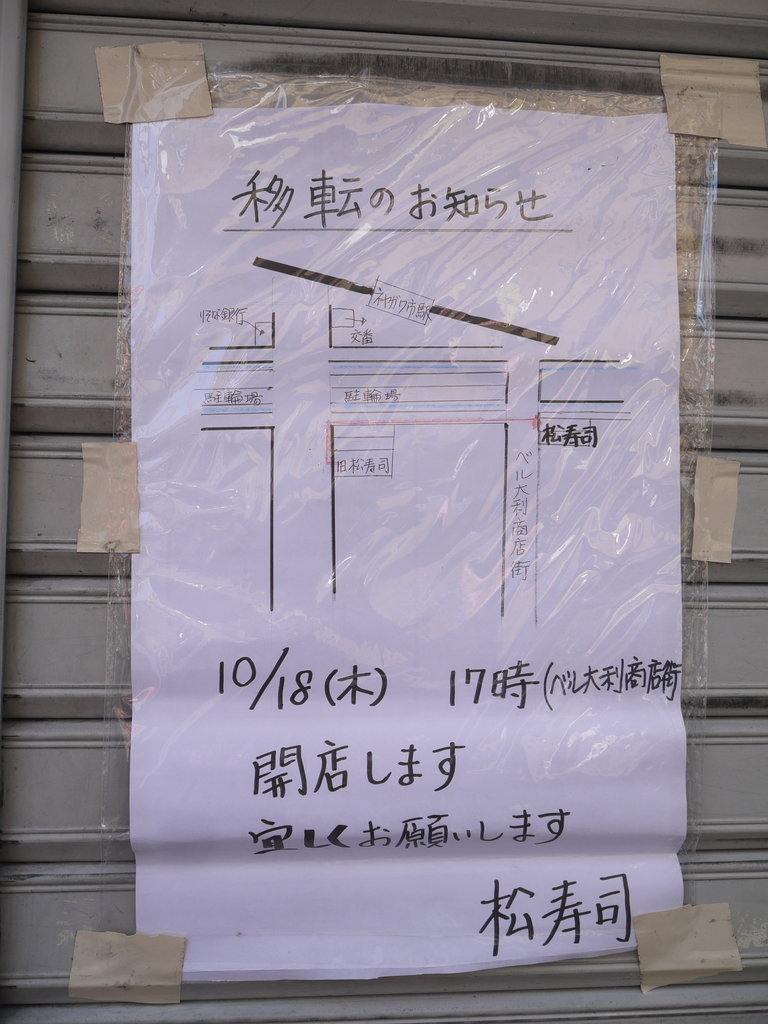 移転のお知らせ
ネヤガワ市駅
りそな銀行
交番
駐輪場
駐輪場
松寿司
旧松寿司
ベル大利商店街
10/18(木) 17時(ベル大利商店街
開店します
宜しくお願いします
松寿司